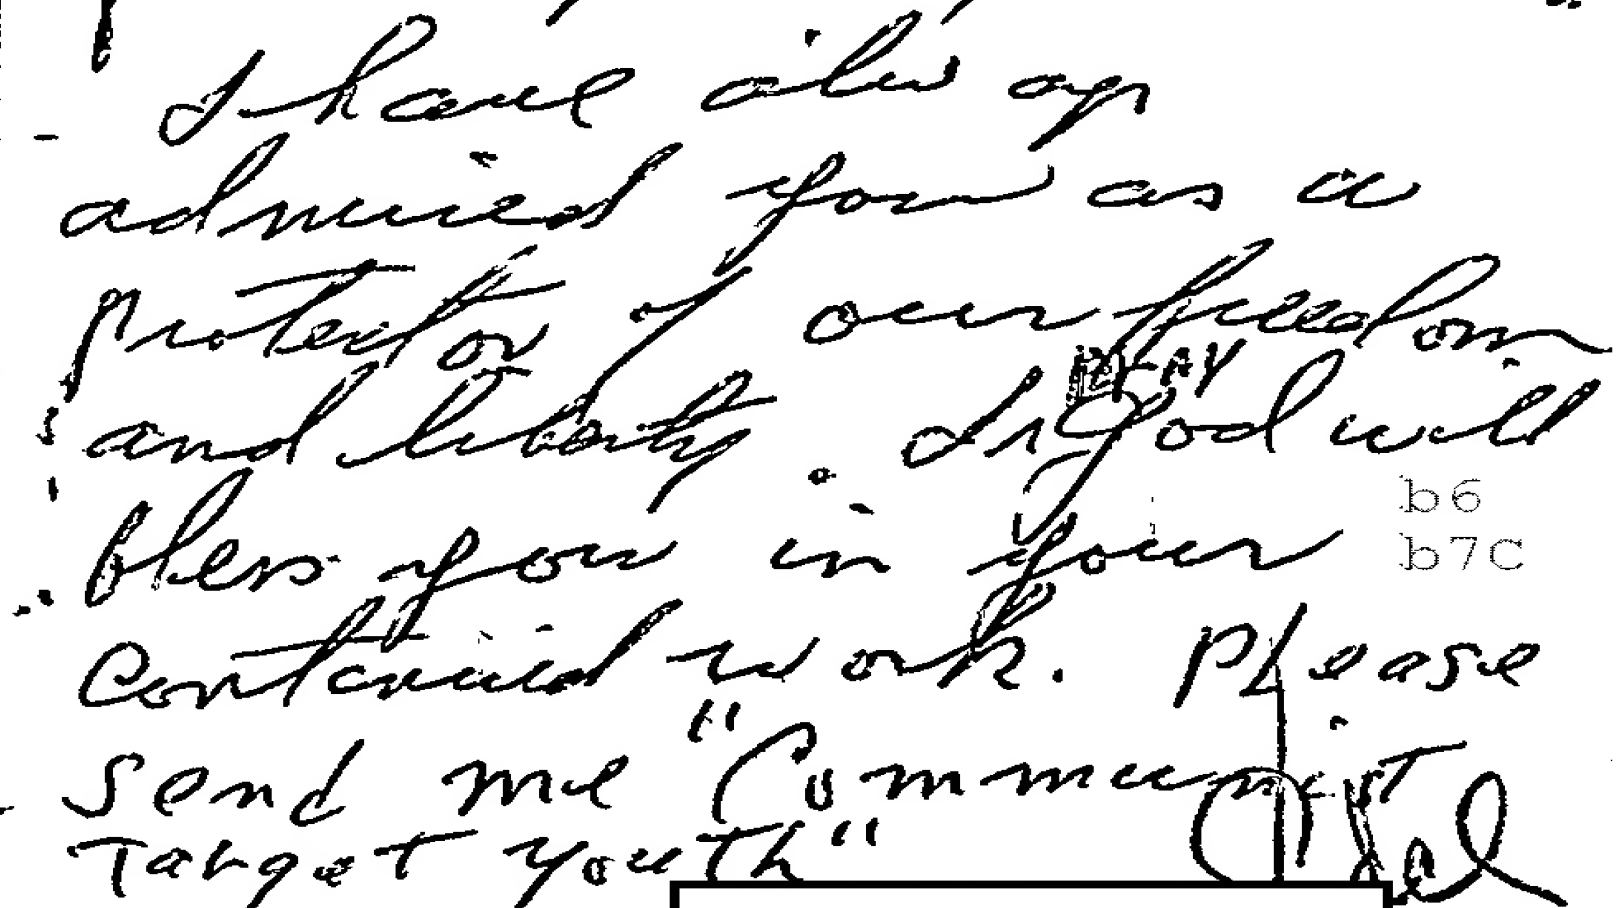 I have always
admired you as a
protector of our freedom
and liberty. I PRAY God will
bless you in your
b6
b7C
continued work. Please
send me "Communist
Target Youth"